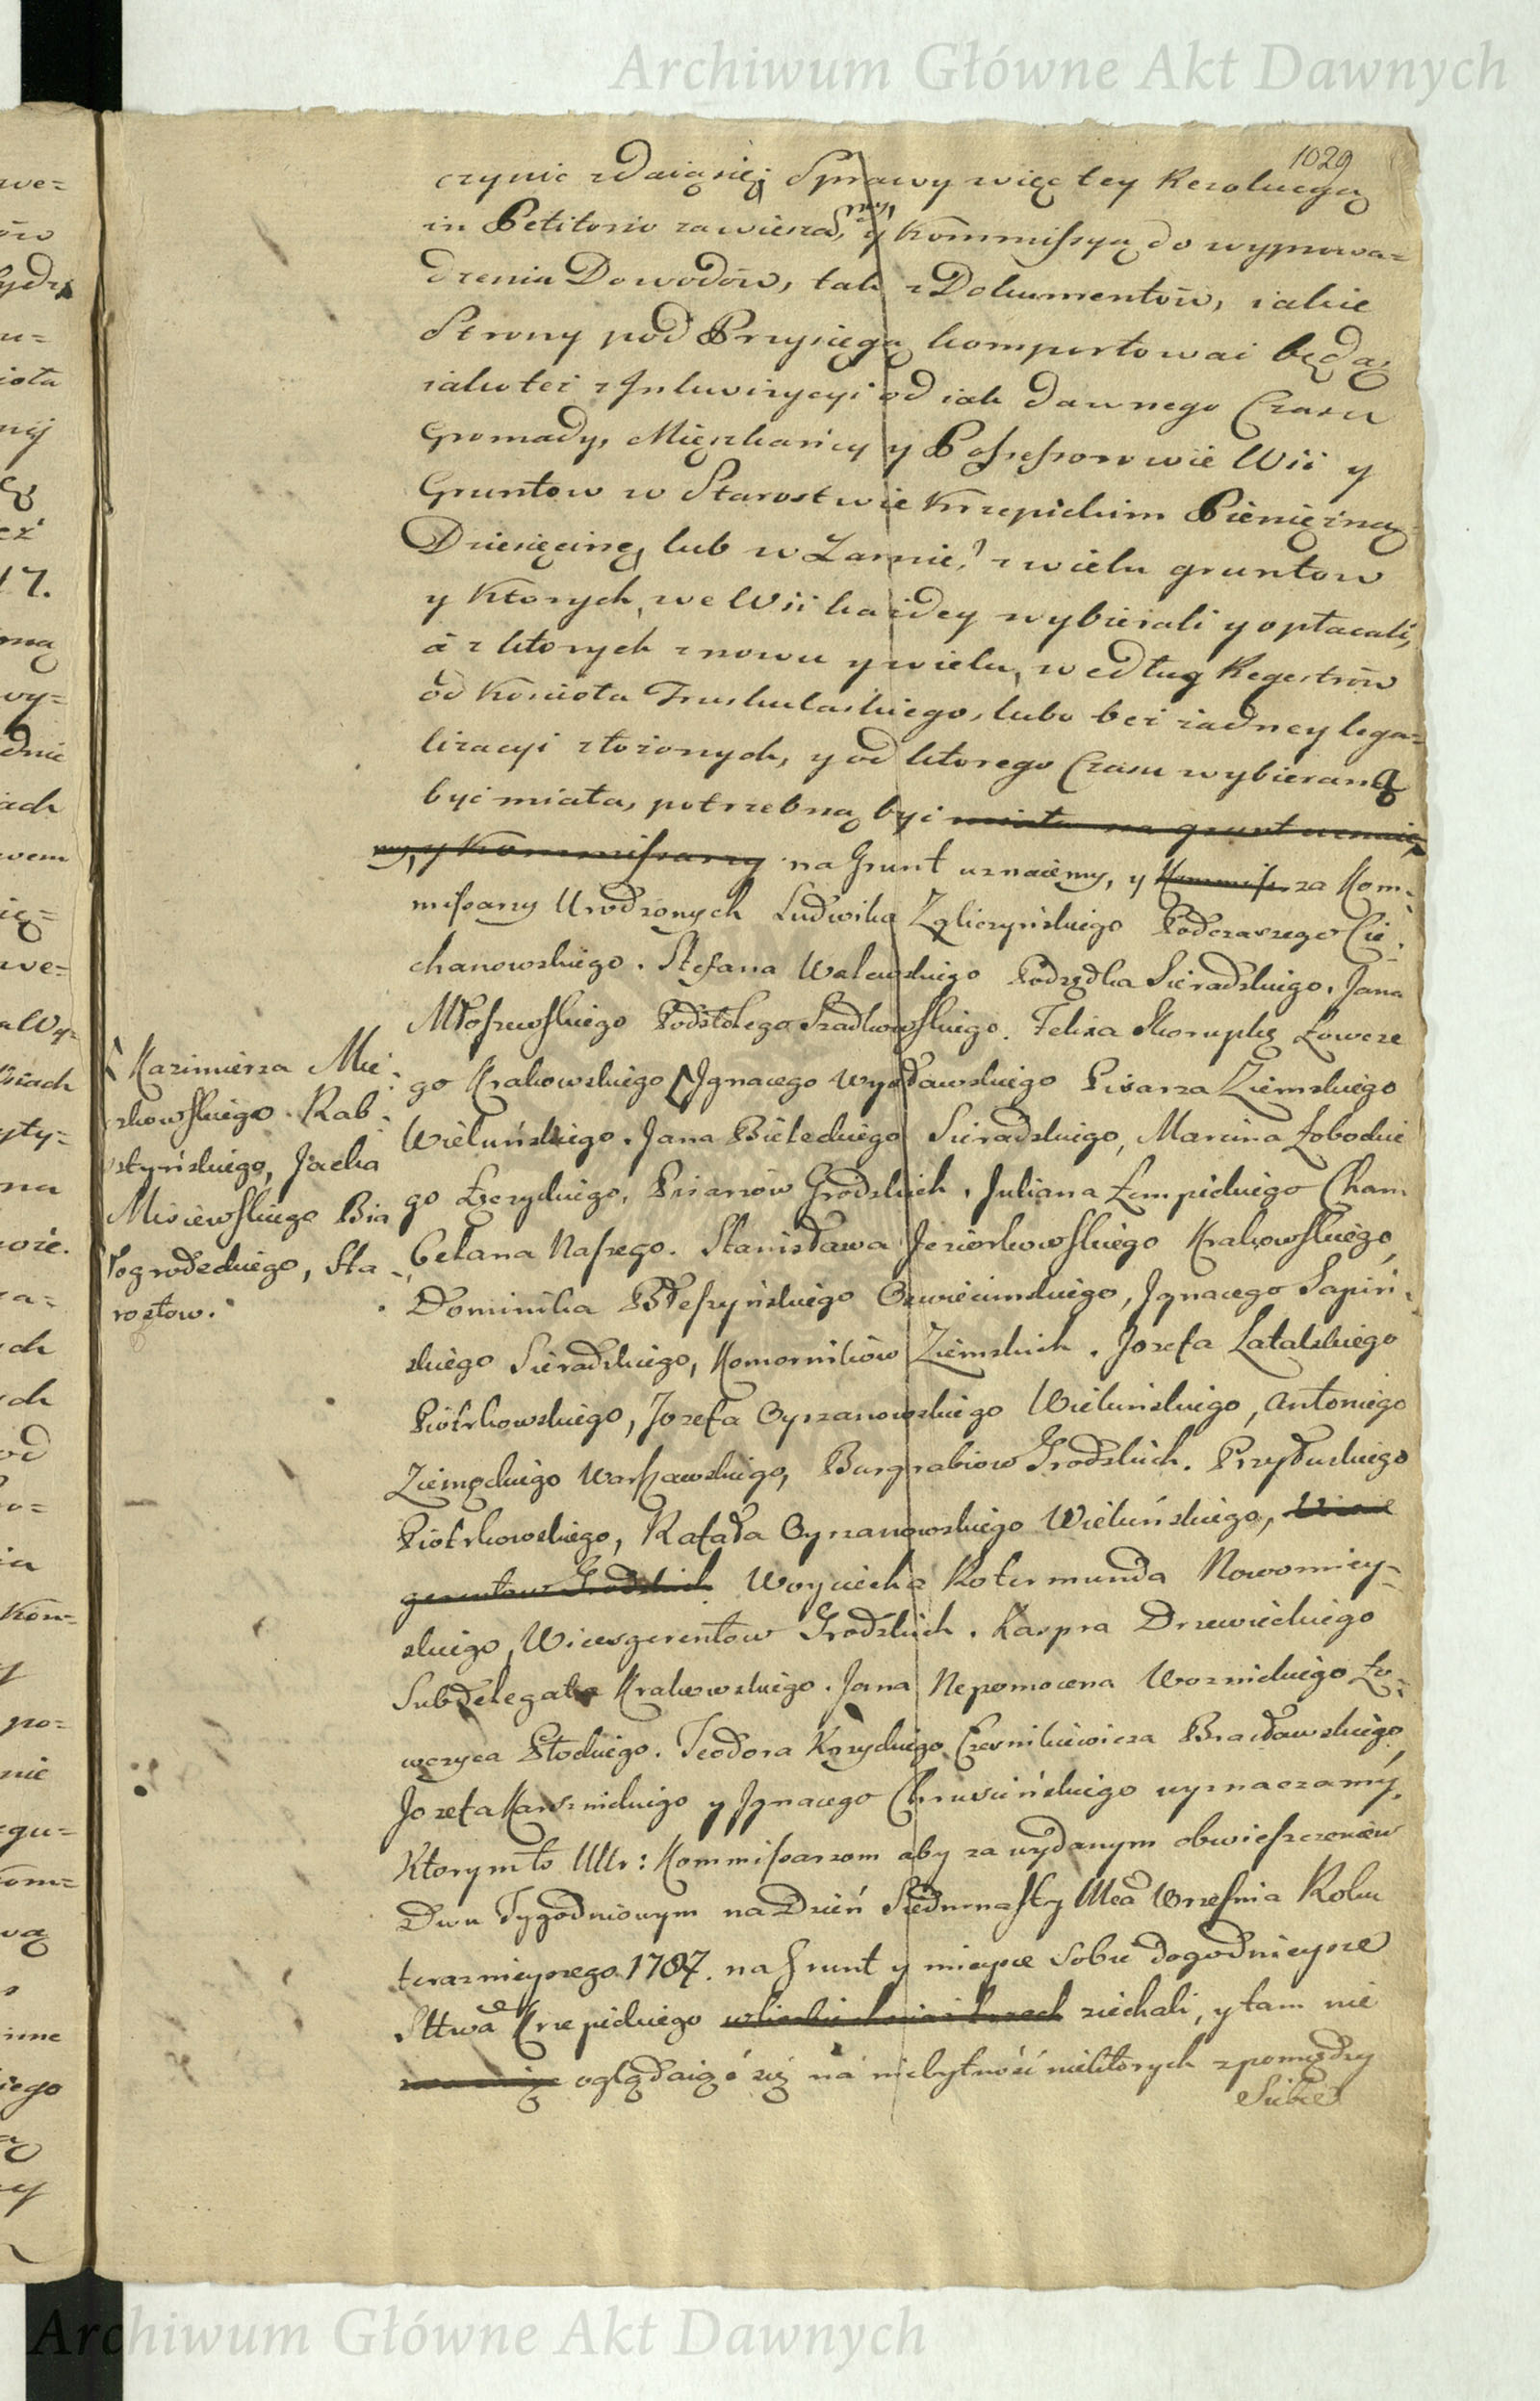 Archiwum Główne Akt Dawnych
1029
czynić zdaią się; Sprawy więc tey Rezolucyą
in Petitorio zawieszamy, y Kommissyą do wyprowa=
dzenia Dowodów, tak z Dokumentów, iakie
Strony pod Przysięgą komportować będą,
iako też z Inkwizycyi od iak dawnego Czasu
Gromady, Mieszkańcy y Possessorowie Wsi y
Gruntow w Starostwie Krzepickim Pieniężną
Dziesięcinę, lub w Zarnie? z wielu gruntow
y Ktorych, we Wsi każdey wybierali y opłacali,
a z ktorych znowu y wielu, według Regestrów
od Kościoła Truskulaskiego, lubo bez żadney lega=
lizacyi złożonych, y od ktorego Czasu wybieraną
być miała, potrzebną być miała na grunt uznaie=
my, y Kommissarzy na Grunt uznaiemy, y Kommiss za Kom=
missarzy Urodzonych Ludwika Zgliczyńskiego Podczaszego Cie=
chanowskiego. Stefana Walewskiego Podsędka Sieradzkiego. Jana
Młoszewskiego Podstolego Szadkowskiego. Felixa Skorupkę Łowcze
go Krakowskiego Ignacego Wyssławskiego Pisarza Ziemskiego
Wieluńskiego. Jana Bieleckiego Sieradzkiego, Marcina Łobockie
go Łęczyckiego, Pisarzów Grodzkich. Juliana Łempickiego Cham
belana Naszego. Stanisława Jeziorkowskiego Krakowskiego,
Dominika Błeszyńskiego Oswiecimskiego, Ignacego Sapiń=
skiego Sieradzkiego, Komorników Ziemskich. Jozefa Latalskiego
Piotrkowskiego, Jozefa Gyszanowskiego Wieluńskiego, Antoniego
Ziemęckiego Warszawskiego, Burgrabiow Grodzkich. Przyłuskiego
Piotrkowskiego, Rafała Gyzanowskiego Wieluńskiego, Vice
gerentow Grodzkich. Woyciecha Rotermunda Nowomiey=
skiego, Vicesgerentow Grodzkich. Kaspra Drzewieckiego
Subdelegata Krakowskiego. Jana Nepomocena Woznickiego Ło=
wczyca Płockiego. Teodora Kąsyckiego Czesnikiewicza Bracławskiego,
Jozefa Karsznickiego y Ignacego Chruscińskiego wyznaczamy,
Ktorym to Ur: Kommissarzom aby za wydanym obwieszczeniem
Dwu Tygodniowym na Dzień Siedmnasty Mca Wrzesnia Roku
teraznieyszego 1787. na Grunt y mieysce Sobie dogodnieysze
Sttwa Krzepickiego ziechali, y tam nie
oglądaiąc się na niebytność niektorych zpomiędzy
Siebie
Kazimierza Mie=
szkowskiego Rab=
sztyńskiego, Jacka
Misiewskiego Bia
łogrodeckiego, Sta=
rostow.
Archiwum Główne Akt Dawnych